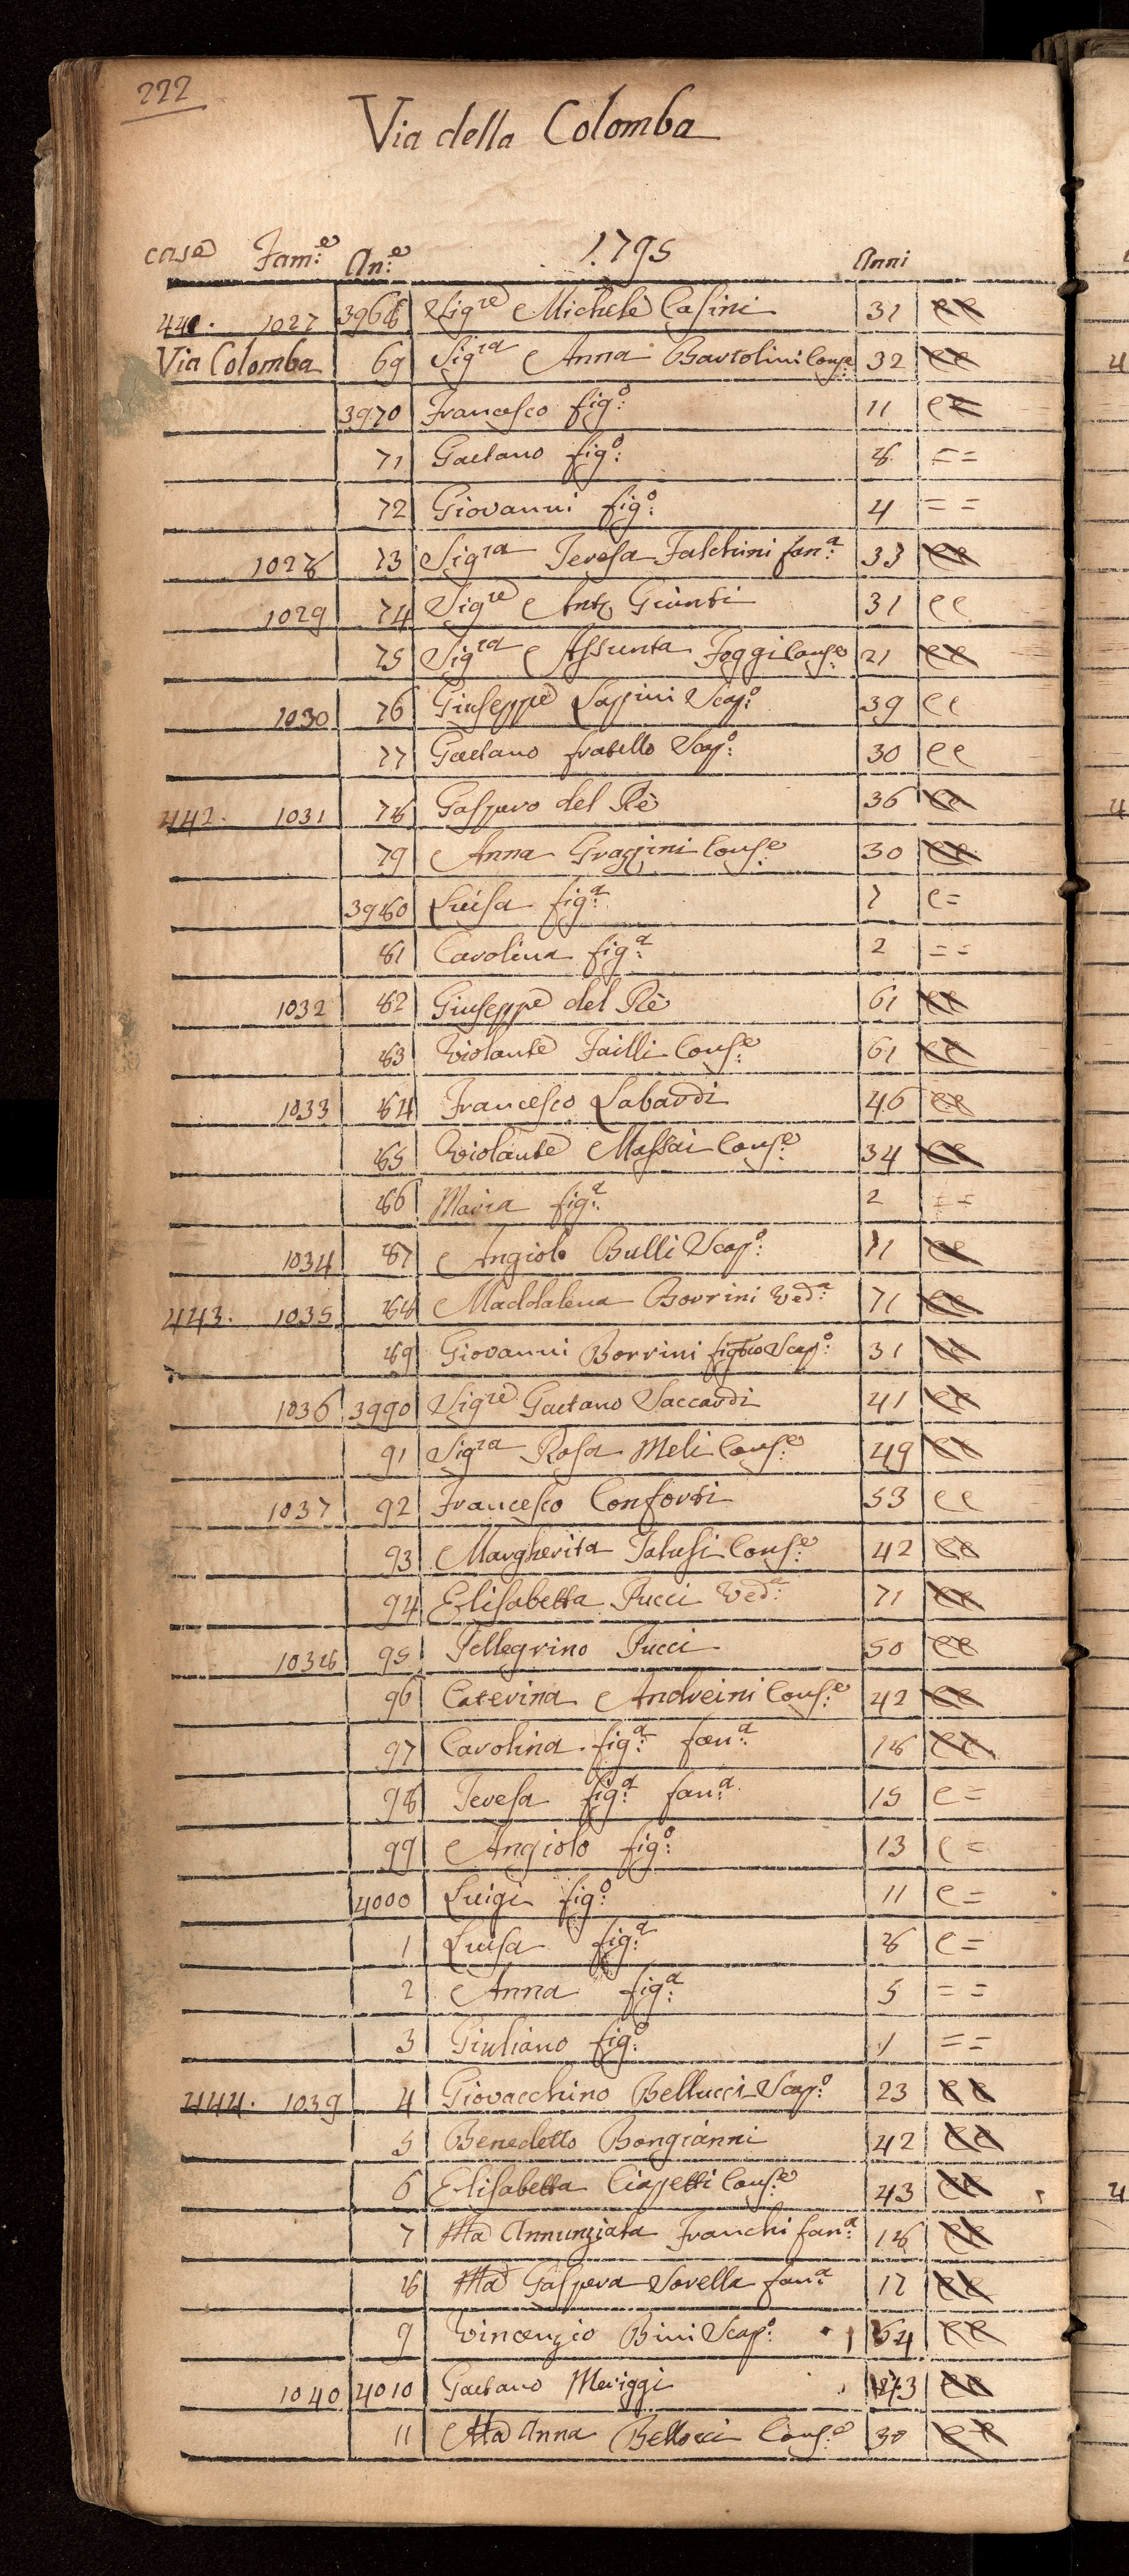 222
Via della Colomba
case Fam:e An:e 1795 Anni
441. 1027 3968 Sigre Michele Casini 31 ee
Via Colomba 69 Sigra Anna Bartolini Cons:e 32 ee
3970 Francesco fig:o 11 e=
71 Gaetano fig:o 8 ==
72 Giovanni fig:o 4 ==
1028 73 Sigra Teresa Falchini fan:a 33 ee
1029 74 Sigre Anto Giunti 31 ee
75 Sigra Assunta Foggi Conse 21 ee
1030 76 Giuseppe Lappini Scap:o 39 ee
77 Gaetano fratello Scap:o 30 ee
442. 1031 78 Gasparo del Rè 36 ee
79 Anna Grazzini Cons:e 30 ee
3980 Luisa fig:a 7 e=
81 Carolina fig:a 2 ==
1032 82 Giuseppe del Rè 61 ee
83 Violante Failli Cons:e 61 ee
1033 84 Francesco Labardi 46 ee
85 Violante Massai Cons:e 34 ee
86 Maria fig:a 2 ==
1034 87 Angiolo Bulli Scap:o 71 ee
443. 1035 88 Maddalena Borrini Ved:a 71 ee
89 Giovanni Borrini figlio Scap:o 31 ee
1036 3990 Sigre Gaetano Saccardi 41 ee
91 Sigra Rosa Meli Cons:e 49 ee
1037 92 Francesco Conforti 53 ee
93 Margherita Cons:e 42 ee
94 Elisabetta Pucci Ved:a 71 ee
1038 95 Pellegrino Pucci 50 ee
96 Caterina Andreini Cons:e 42 ee
97 Carolina fig:a fan:a 18 ee
98 Teresa fig:a fan:a 15 e=
99 Angiolo fig:o 13 e=
4000 Luigi fig:o 11 e=
1 Luisa fig:a 8 e=
2 Anna fig:a 5 ==
3 Giuliano fig:o 1 ==
444. 1039 4 Giovacchino Bellucci Scap:o 23 ee
5 Benedetto Bongianni 42 ee
6 Elisabetta Ciappetti Cons:e 43 ee
7 Ma Annunziata Franchi fan:a 18 ee
8 Ma Gaspera Sorella fan:a 17 ee
9 Vincenzio Bini Scap:o 64 ee
1040 4010 Gaetano Meriggi 43 ee
11 Ma Anna Bellocci Cons:e 30 ee